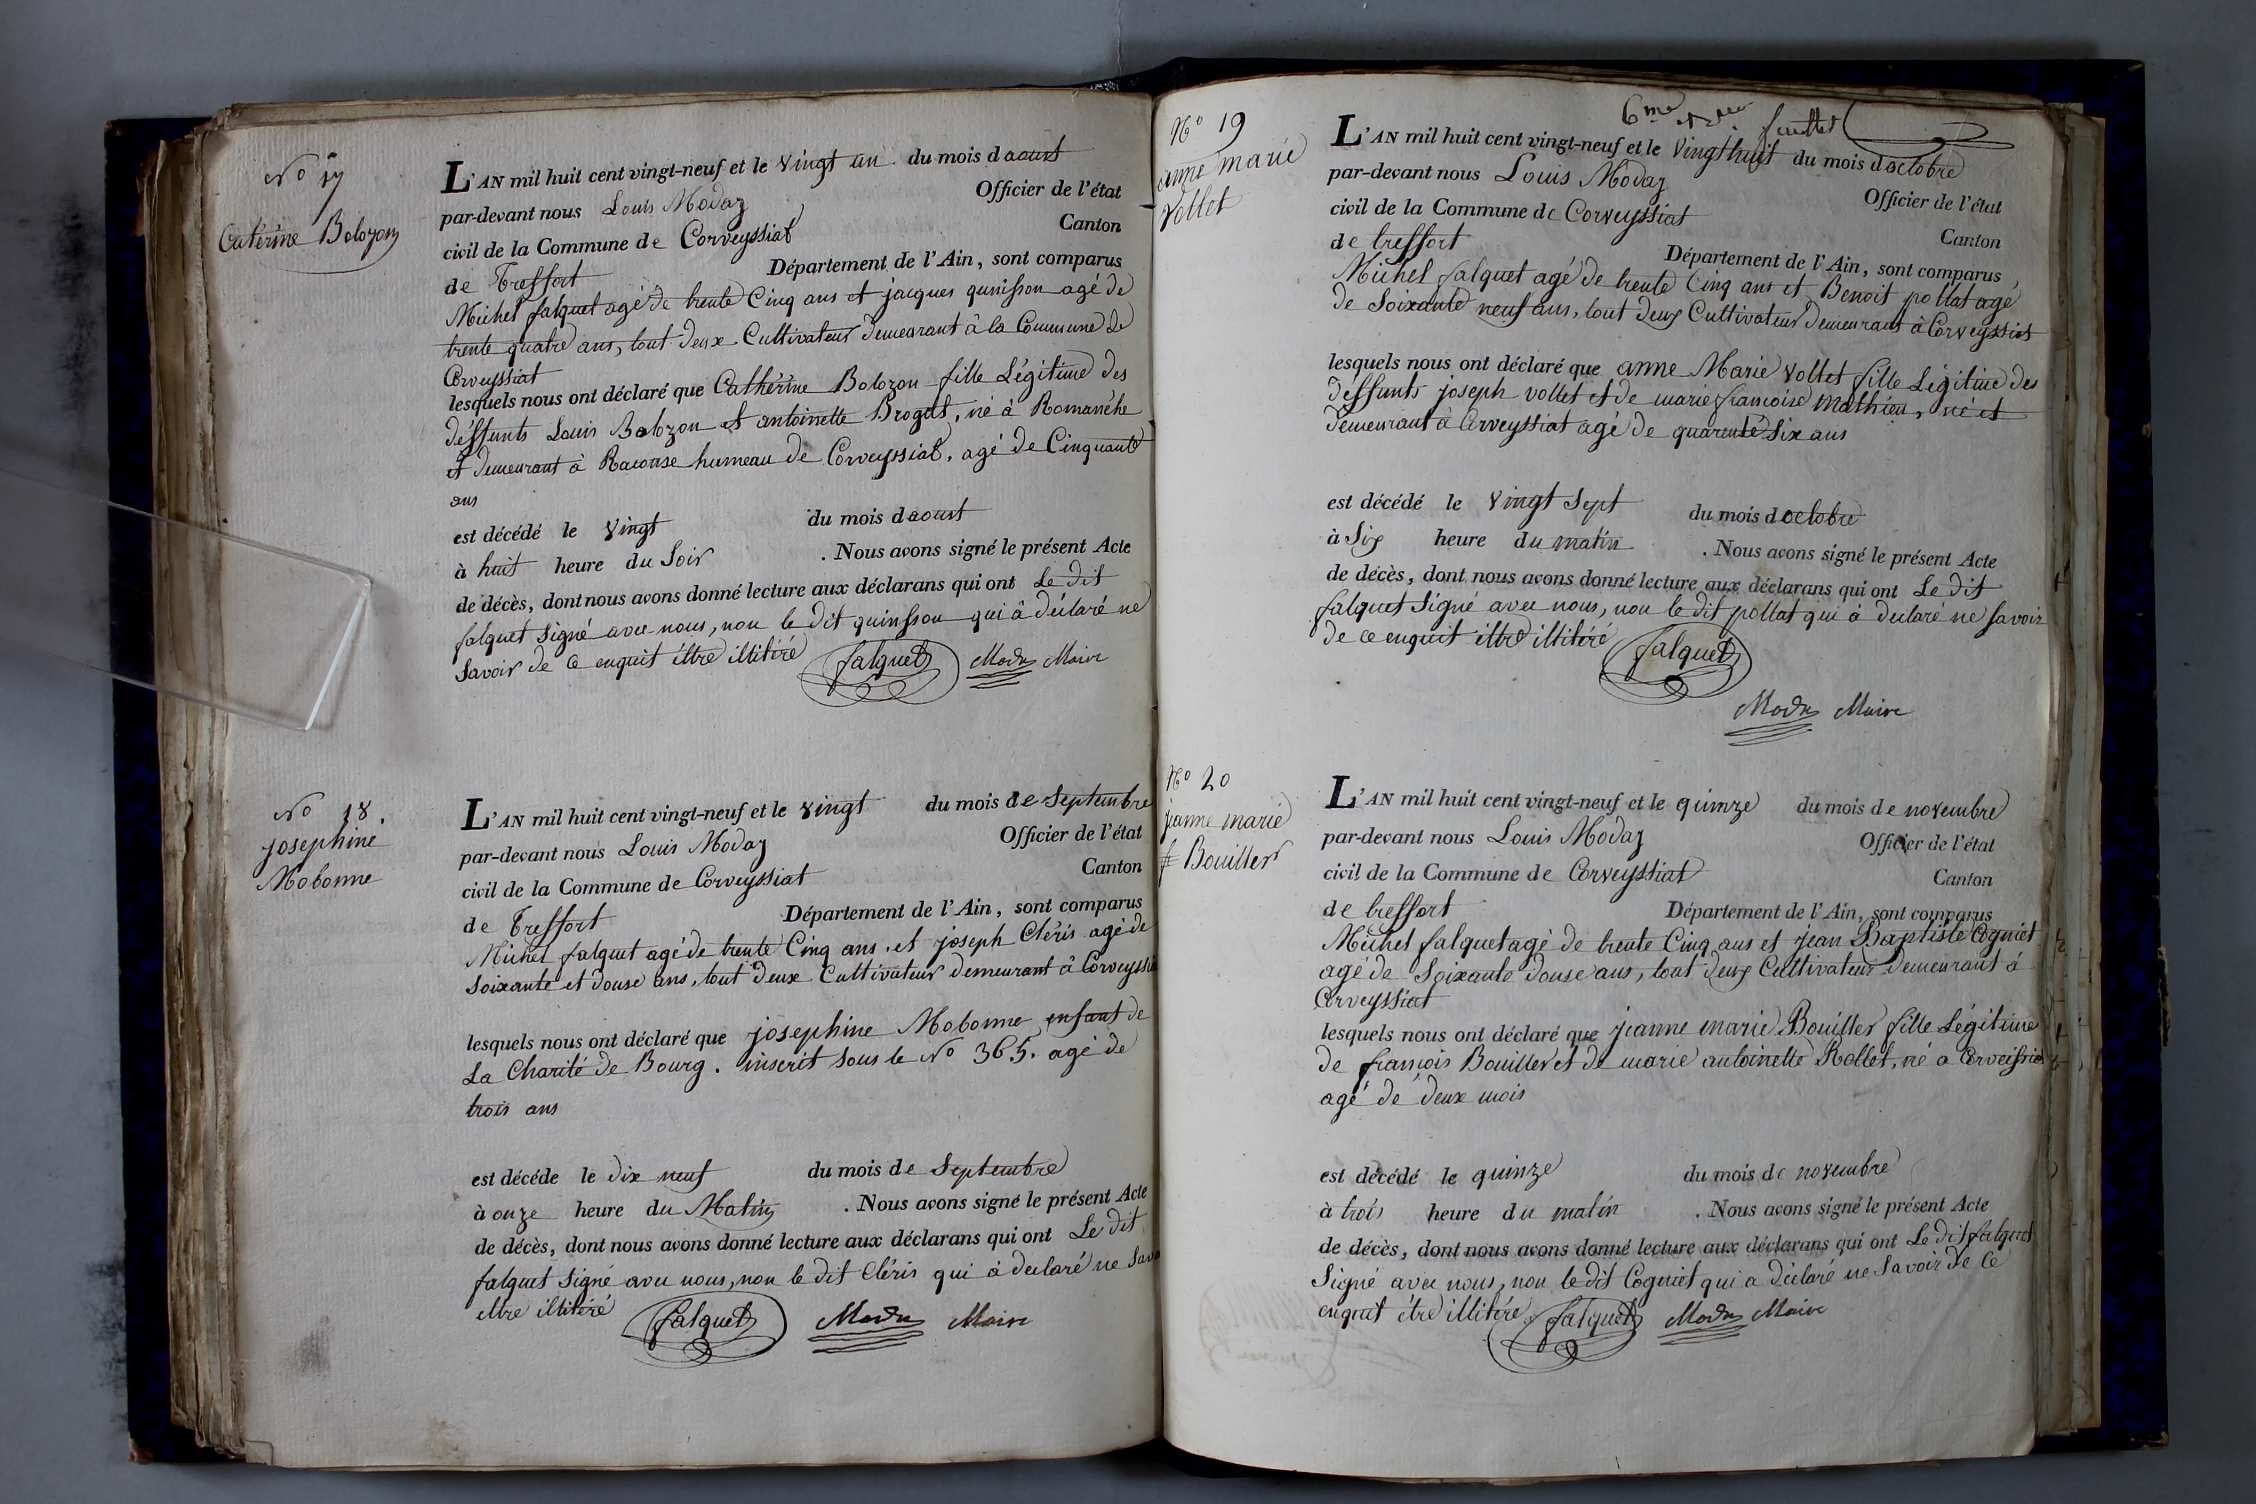 No 17
Catérine Bolozon
L'AN mil huit cent vingt-neuf et le vingt un du mois daoust
par-devant nous Louis Modaz Officier de l'état
civil de la Commune de Corveyssiat Canton
de Treffort Département de l'Ain, sont comparus
Michel falquet agé de trente Cinq ans et jacques quinsson agé de
trente quatre ans, tout deux Cultivateur demeurant à la Commune de
Corveyssiat
lesquels nous ont déclaré que Cathérine Bolozon fille Légitime des
déffunts Louis Bolozon et antoinette Brogat, né à Romanèhe
et demeurant à Racouse hameau de Corveyssiat, agé de Cinquante
ans
est décédé le vingt du mois daoust
à huit heure du Soir . Nous avons signé le présent Acte
de décès, dont nous avons donné lecture aux déclarans qui ont Le dit
falquet signé avec nous, non le dit quinsson qui à déclaré ne
Savoir de ce enquit être illitéré falquet Modaz Maire
No 18.
josephine
Mobonne
L'AN mil huit cent vingt-neuf et le vingt du mois de Septembre
par-devant nous Louis Modaz Officier de l'état
civil de la Commune de Corveyssiat Canton
de Treffort Département de l'Ain, sont comparus
Michel falquet agé de trente Cinq ans et joseph Cléris agé de
Soixante et douse ans, tout deux Cultivateur demeurant à Corveyssia
lesquels nous ont déclaré que josephine Mobonne enfant de
La Charité de Bourg. inscrit sous le No 365. agé de
trois ans
est décéde le dix neuf du mois de Septembre
à onze heure du Matin . Nous avons signé le présent Acte
de décès, dont nous avons donné lecture aux déclarans qui ont Le dit
falquet signé avec nous, non le dit Cléris qui à declaré ne Savo
être illitéré falquet Modaz Maire
6me et der feuillet
No 19
anne marie
vollet
L'AN mil huit cent vingt-neuf et le vingt huit du mois doctobre
par-devant nous Louis Modaz Officier de l'état
civil de la Commune de Corveyssiat Canton
de treffort Département de l'Ain, sont comparus
Michel falquet agé de trente Cinq ans et Benoit pollat agé
de Soixante neuf ans, tout deux Cultivateur demeurant à Corveyssiat
lesquels nous ont déclaré que anne Marie vollet fille Légitime des
déffunts joseph vollet et de marie francoise mathieu, né et
demeurant à Corveyssiat agé de quarente six ans
est décédé le vingt Sept du mois doctobre
à Six heure du matin . Nous avons signé le présent Acte
de décès, dont nous avons donné lecture aux déclarans qui ont Le dit
falquet Signé avec nous, non le dit pollat qui à declaré ne Savoir
de ce enquit être illitéré falquet
Modaz Maire
No 20
jeanne marie
Bouiller
L'AN mil huit cent vingt-neuf et le quinze du mois de novembre
par-devant nous Louis Modaz Officier de l'état
civil de la Commune de Corveyssiat Canton
de treffort Département de l'Ain, sont comparus
Michel falquet agé de trente Cinq ans et jean Baptiste Cogniet
agé de Soixante douse ans, tout deux Cultivateur demeurant à
Corveyssiat
lesquels nous ont déclaré que jeanne marie Bouiller fille Légitime
de francois Bouiller et de marie antoinette Rollet, né a Corveissiat
agé de deux mois
est décédé le quinze du mois de novembre
à trois heure du matin . Nous avons signé le présent Acte
de décès, dont nous avons donné lecture aux déclarans qui ont Le dit falquet
Signé avec nous, non le dit Cogniet qui a déclaré ne Savoir de ce
enquit être illitére falquet Modaz Maire